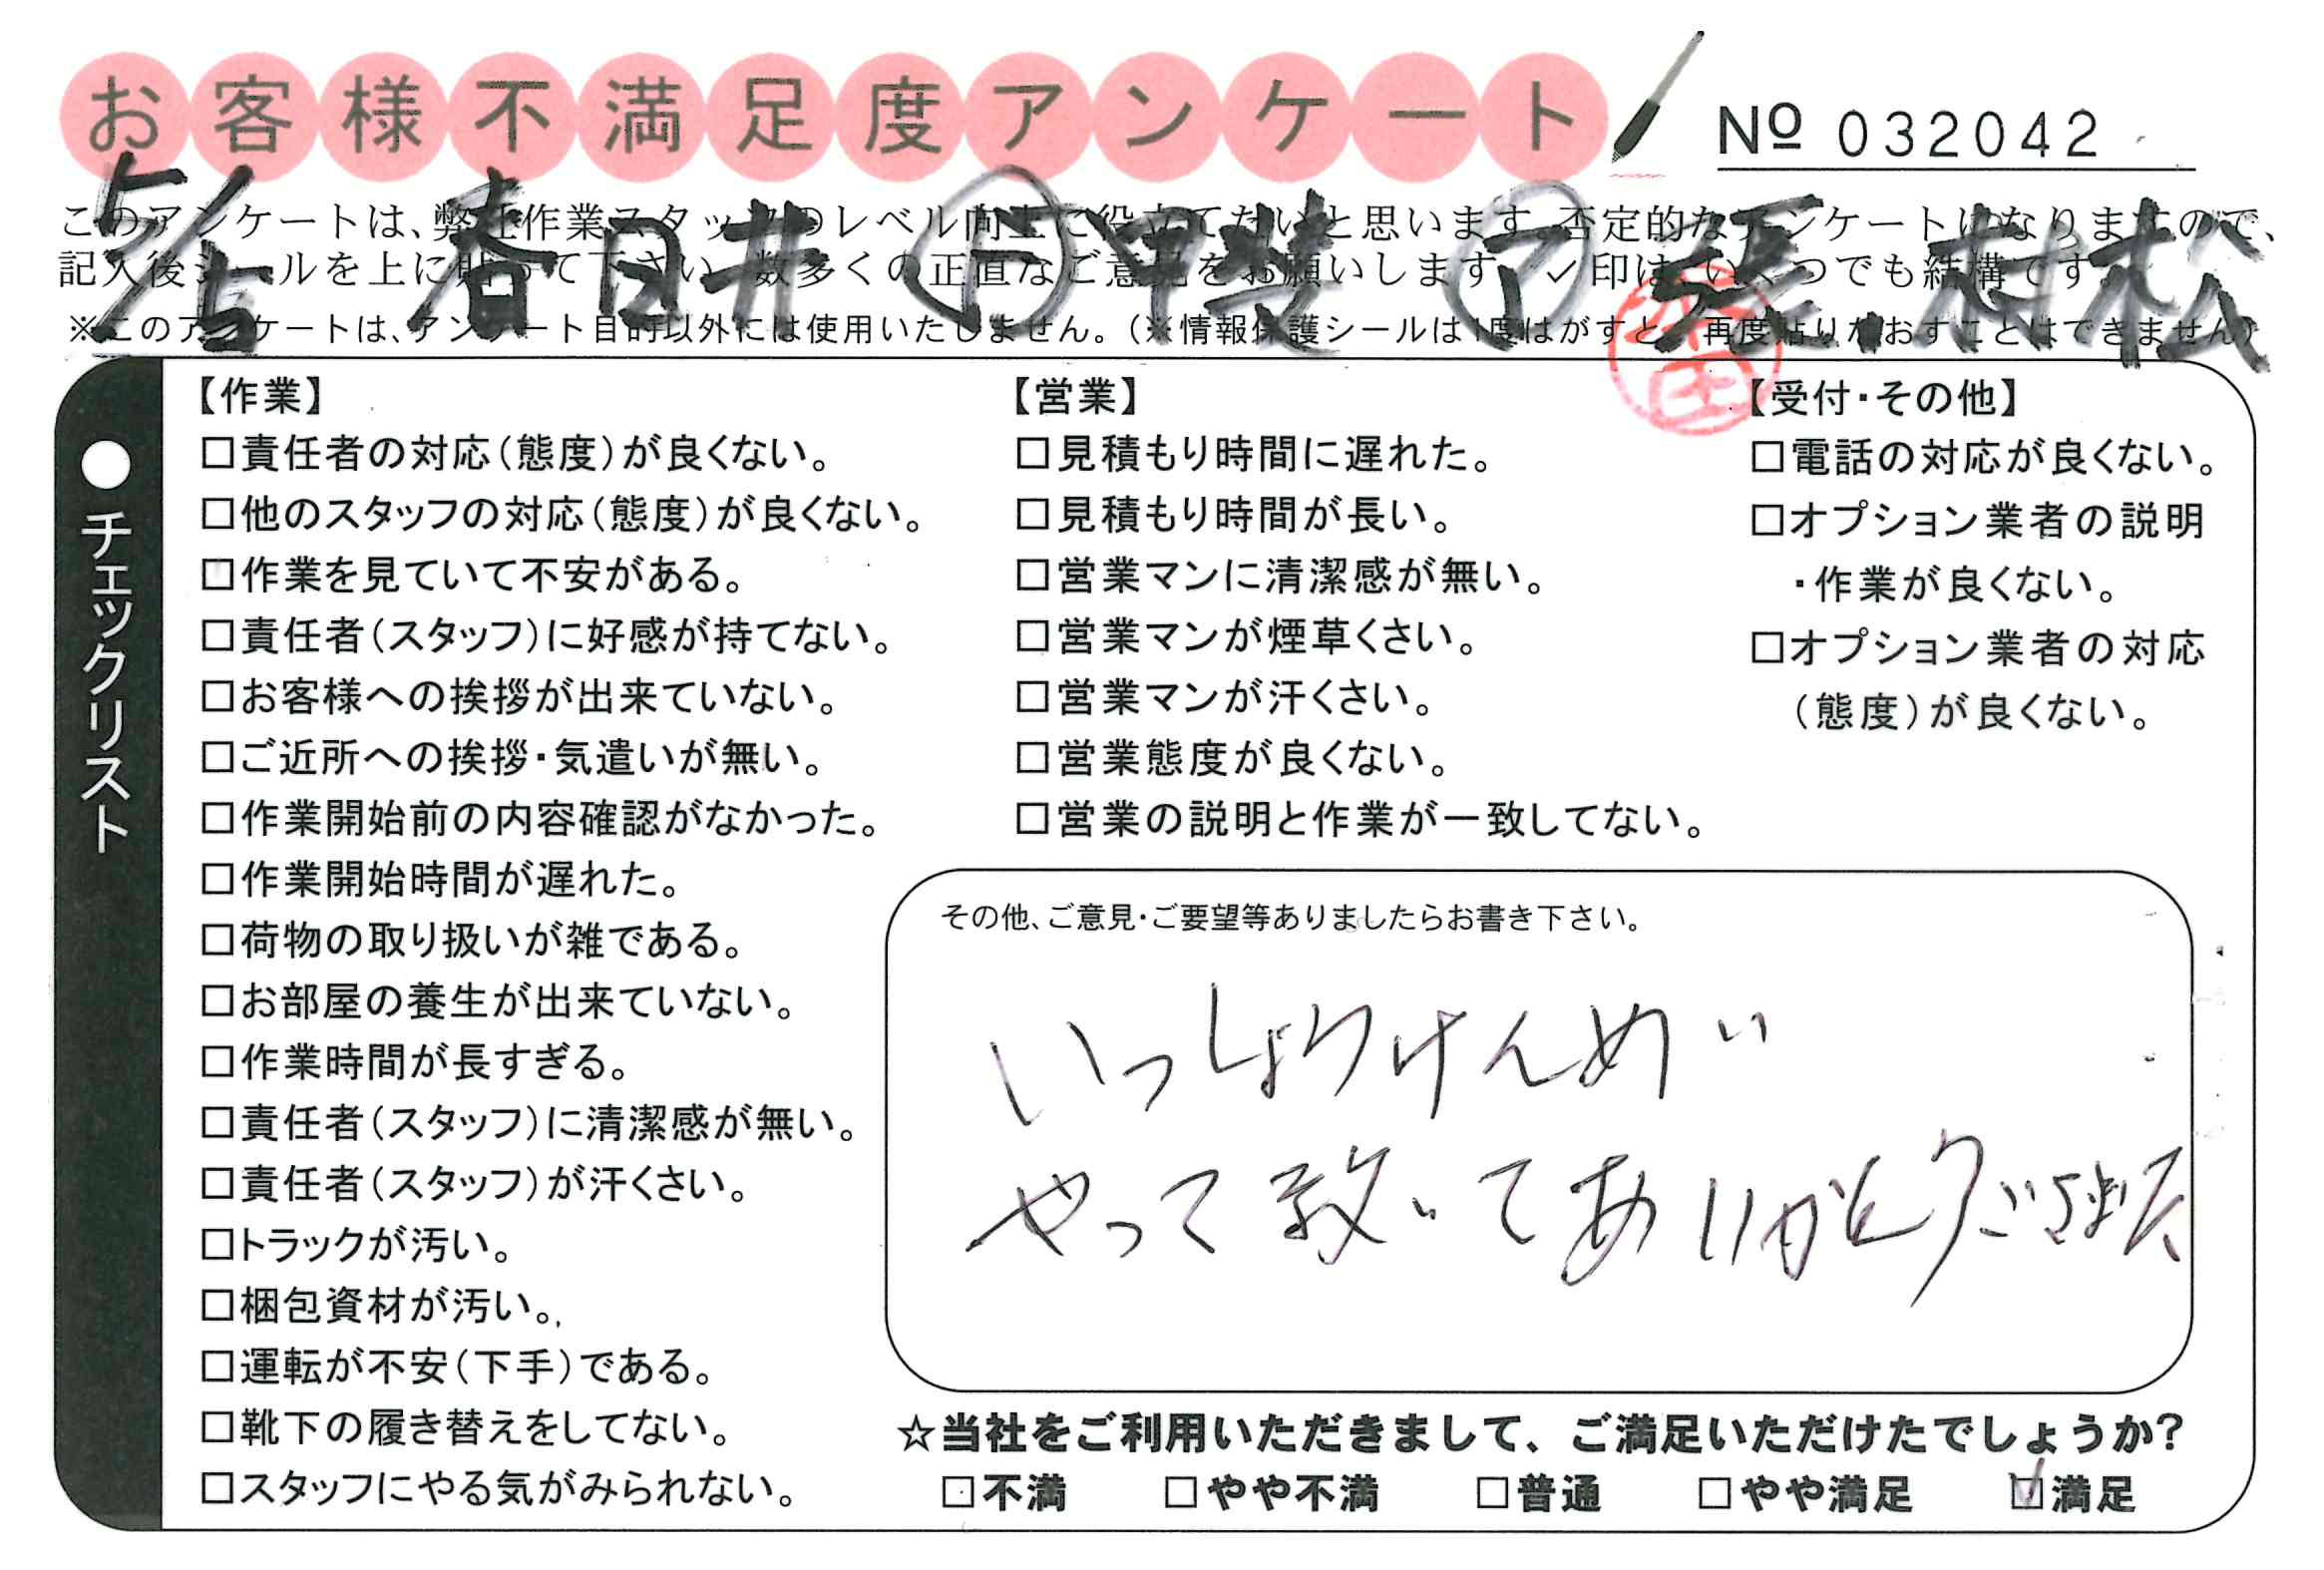 お客様不満足度アンケート
№ 032042
5/5 春日井 ト 甲斐 ア 張、村松
このアンケートは、弊社作業スタッフのレベル向上に役立てたいと思います。否定的なアンケートになりますので、
記入後シールを上に貼って下さい。数多くの正直なご意見をお願いします。✓印はいくつでも結構です。
※このアンケートは、アンケート目的以外には使用いたしません。(※情報保護シールは1度はがすと、再度貼りなおすことはできません)
●チェックリスト
【作業】
□責任者の対応(態度)が良くない。
□他のスタッフの対応(態度)が良くない。
□作業を見ていて不安がある。
□責任者(スタッフ)に好感が持てない。
□お客様への挨拶が出来ていない。
□ご近所への挨拶・気遣いが無い。
□作業開始前の内容確認がなかった。
□作業開始時間が遅れた。
□荷物の取り扱いが雑である。
□お部屋の養生が出来ていない。
□作業時間が長すぎる。
□責任者(スタッフ)に清潔感が無い。
□責任者(スタッフ)が汗くさい。
□トラックが汚い。
□梱包資材が汚い。
□運転が不安(下手)である。
□靴下の履き替えをしてない。
□スタッフにやる気がみられない。
【営業】
□見積もり時間に遅れた。
□見積もり時間が長い。
□営業マンに清潔感が無い。
□営業マンが煙草くさい。
□営業マンが汗くさい。
□営業態度が良くない。
□営業の説明と作業が一致してない。
【受付・その他】
□電話の対応が良くない。
□オプション業者の説明
・作業が良くない。
□オプション業者の対応
(態度)が良くない。
その他、ご意見・ご要望等ありましたらお書き下さい。
いっしょうけんめい
やって頂いてありがとうございました
☆当社をご利用いただきまして、ご満足いただけたでしょうか?
□不満 □やや不満 □普通 □やや満足 ☑満足